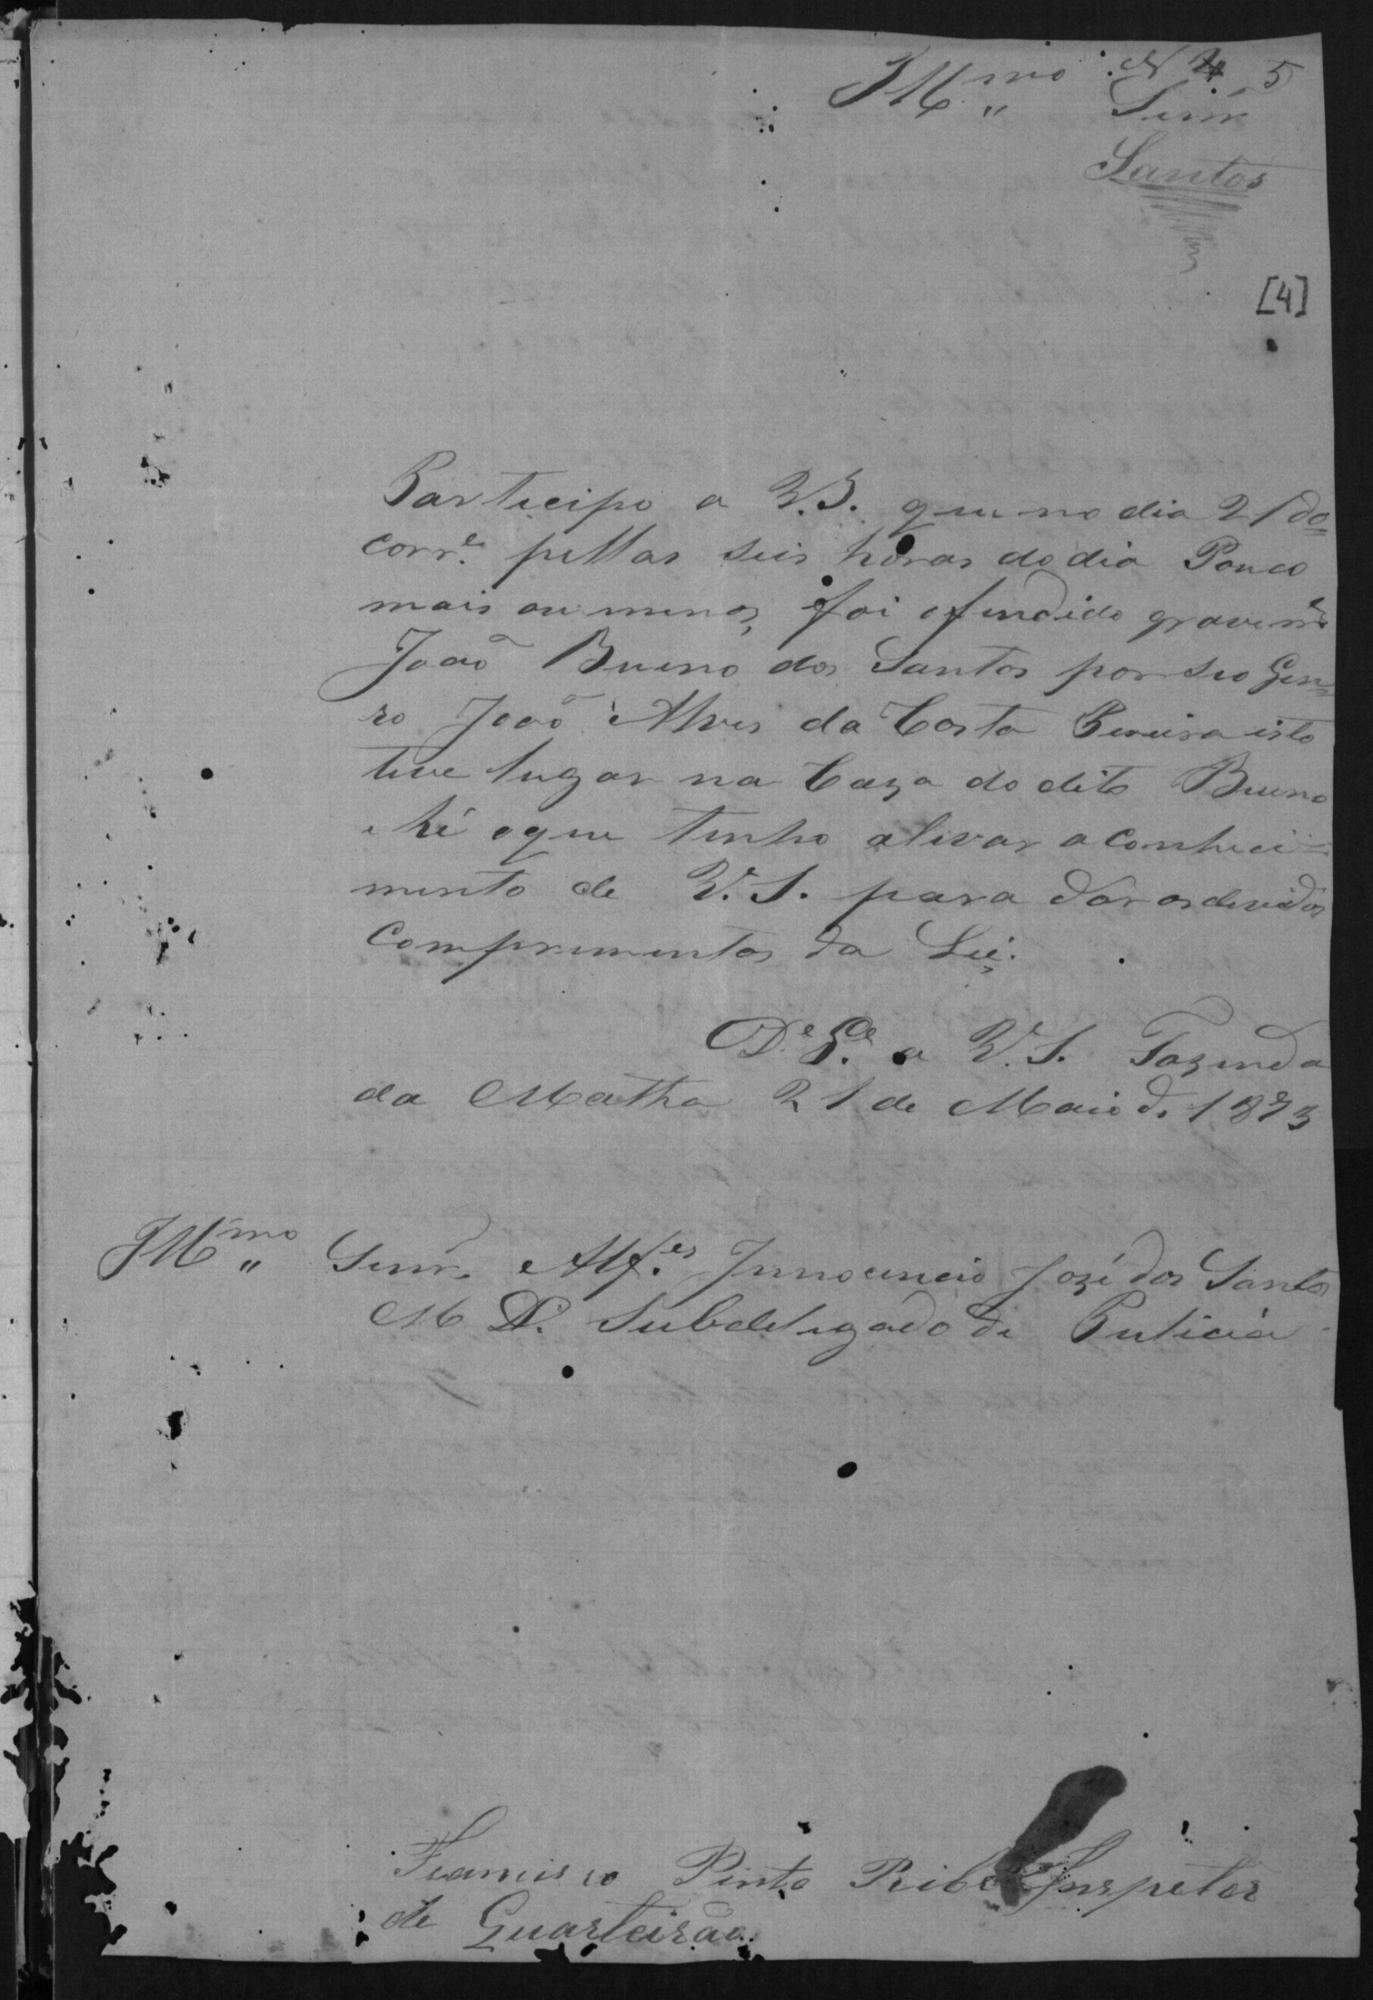 Illmo Senr N 4 5
Santos
[4]
Participo a V.S. que no dia 21 do
corre. pellas seis horas do dia Pouco
mais ou menos, foi ofendido gravemte
João Bueno dos Santos por seo Gen-
ro João Alves da Costa Pereira isto
teve lugar na Caza do dito Bueno
hé oque tenho alevar a conheci-
mento de V.S. para dar os devidos
comprimentos da Lei.
De Ge. a V.S. Fazenda
da Matha 21 de Maio de 1873
Illmo Senr. Alfes. Innocencio José dos Santos
M D. Subdelegado de Pulicia
Francisco Pinto Inspetor
de Quarteirão